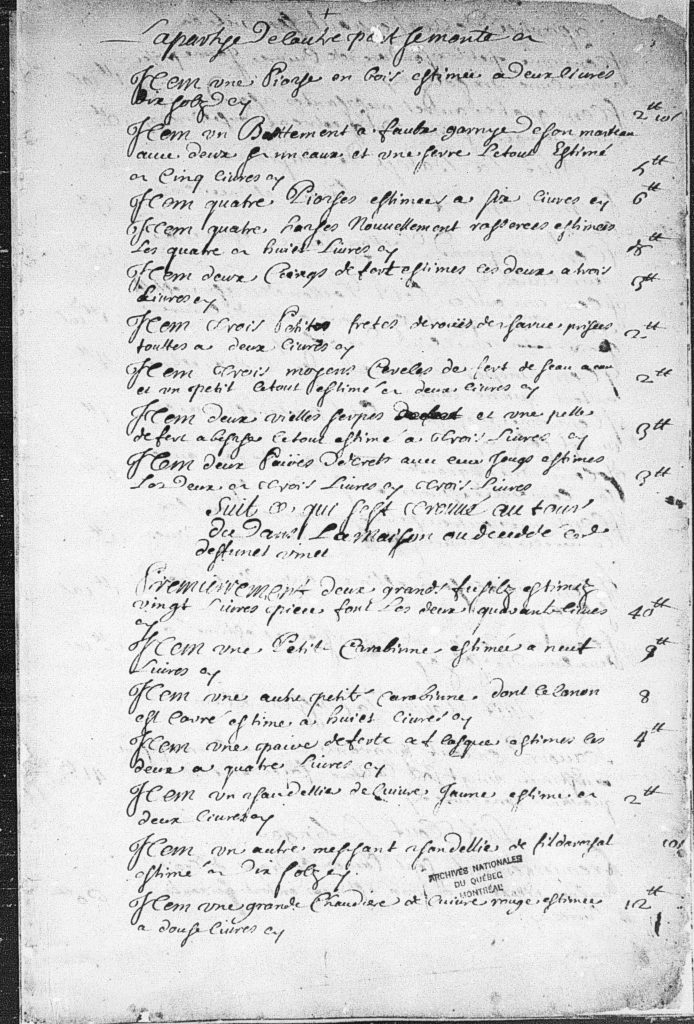 La partye de lautre part se monte a
Item une Piorse en bois estimee a deux livres
dix solz cy 2tt 10s
Item un Battement a faulx garnye de son marteau
avec deux anneaux et une serre Le tout Estimé
a Cinq livres cy 5tt
Item quatre Piorses estimees a six livres cy 6tt
Item quatre harses Nouvellement estimees
Les quatre a huict Livres cy 8tt
Item deux de fert estimes les deux a trois
Livres cy 3tt
Item trois Petites fretes de roües de charue prisees
touttes a deux livres cy 2tt
Item trois moyens Cercles de fert de seau a eau
et un petit le tout estimé a deux livres cy 2tt
Item deux vielles serpes et une pelle
de fert le tout estimé a trois Livres cy 3tt
Item deux avec estimes
Les deux a trois Livres cy trois Livres 3tt
Suit ce qui sest trouvé au tour
du dans La maison ou decedde
Premierrement deux grands fusilz estimez
vingt Livres piece font Les deux quarante livres
cy 40tt
Item une Petite Carabinne estimée a neuf
Livres cy 9tt
Item une autre petite carabinne dont le canon
est estime a huict livres cy 8
Item une estimes les
deux a quatre Livres cy 4tt
Item un chandellie de Cuivre Jaune estime a
deux livres cy 2tt
Item un autre meschant chandellie de fil darchal
estimé a dix solz cy 10s
ARCHIVES NATIONALES
DU QUÉBEC
MONTRÉAL
Item une grande Chaudiere de Cuivre rouge estimee
a douse livres cy 12tt